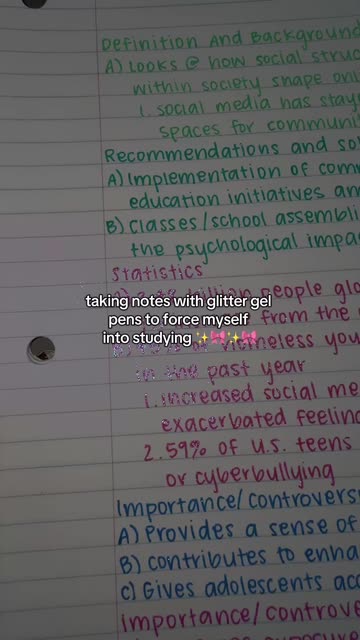 Definition and Background
A) Looks @ how social struc
within society shape onl
1. social media has stay
spaces for communi
Recommendations and sol
A) Implementation of com
education initiatives an
B) Classes/school assembli
the psychological impa
Statistics
people glo
from the
taking notes with glitter gel
pens to force myself
into studying ✨🎀✨🎀
homeless you
in the past year
1. increased social me
exacerbated feelin
2. 59% of U.S. teens
or cyberbullying
Importance/controvers
A) Provides a sense of
B) contributes to enha
C) Gives adolescents acc
importance/controve